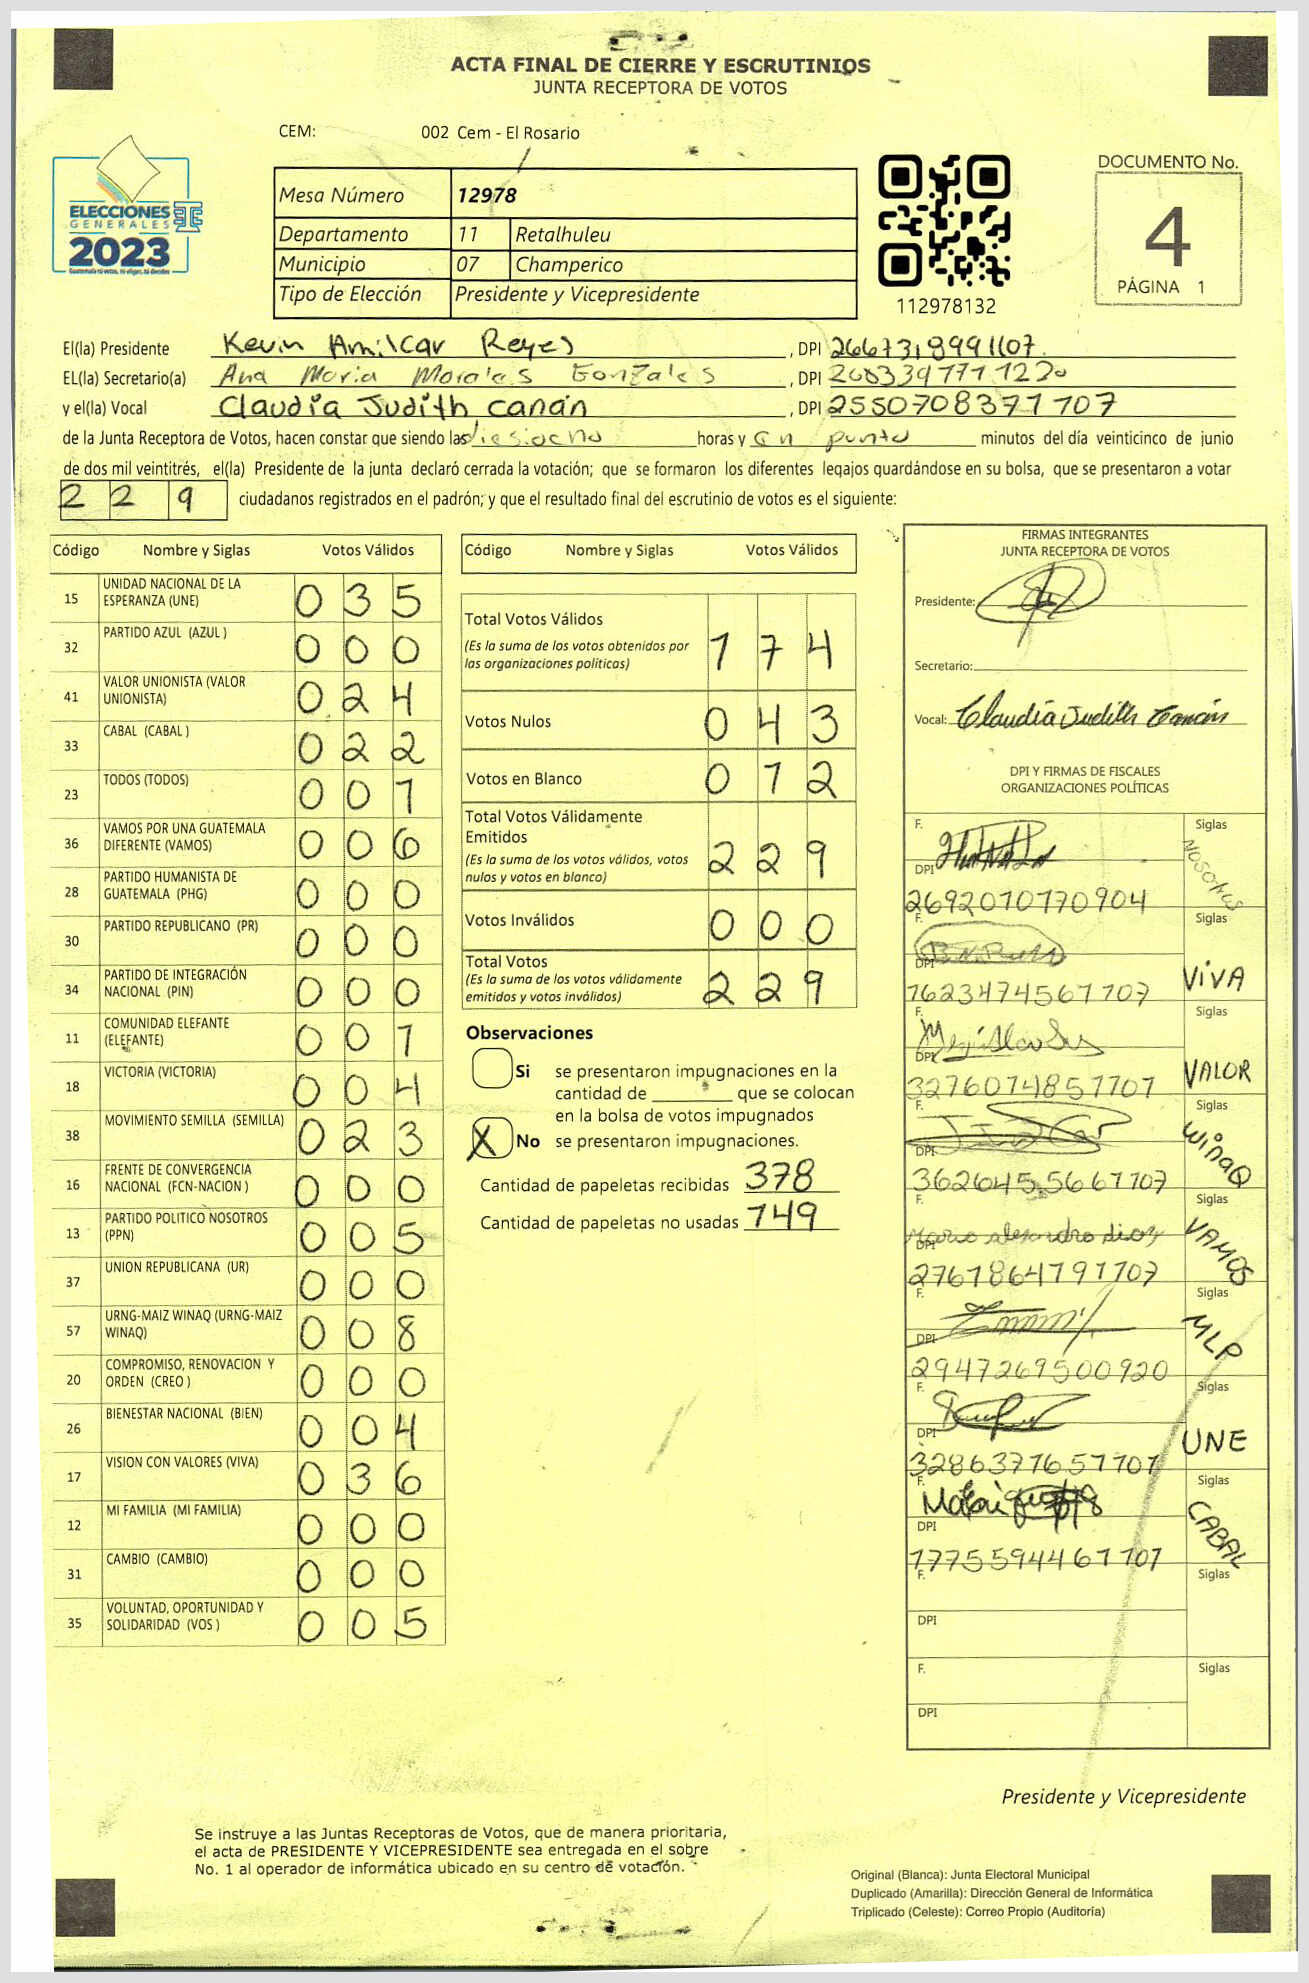 ACTA FINAL DE CIERRE Y ESCRUTINIOS
JUNTA RECEPTORA DE VOTOS
CEM: 002 Cem - El Rosario
ELECCIONES
GENERALES
2023
Guatemala tú votas, tú eliges, tú decides
Mesa Número 12978
Departamento 11 Retalhuleu
Municipio 07 Champerico
Tipo de Elección Presidente y Vicepresidente
112978132
DOCUMENTO No.
4
PÁGINA 1
El(la) Presidente Kevin Amilcar Reyes , DPI
EL(la) Secretario(a) Ana Maria Morales Gonzales , DPI
y el(la) Vocal Claudia Judith Canán , DPI 2550708371707
de la Junta Receptora de Votos, hacen constar que siendo las diesiocho horas y en punto minutos del día veinticinco de junio
de dos mil veintitrés, el(la) Presidente de la junta declaró cerrada la votación; que se formaron los diferentes legajos guardándose en su bolsa, que se presentaron a votar
2 2 9 ciudadanos registrados en el padrón; y que el resultado final del escrutinio de votos es el siguiente:
Código Nombre y Siglas Votos Válidos
15 UNIDAD NACIONAL DE LA ESPERANZA (UNE) 0 3 5
32 PARTIDO AZUL (AZUL ) 0 0 0
41 VALOR UNIONISTA (VALOR UNIONISTA) 0 2 4
33 CABAL (CABAL ) 0 2 2
23 TODOS (TODOS) 0 0 1
36 VAMOS POR UNA GUATEMALA DIFERENTE (VAMOS) 0 0 6
28 PARTIDO HUMANISTA DE GUATEMALA (PHG) 0 0 0
30 PARTIDO REPUBLICANO (PR) 0 0 0
34 PARTIDO DE INTEGRACIÓN NACIONAL (PIN) 0 0 0
11 COMUNIDAD ELEFANTE (ELEFANTE) 0 0 1
18 VICTORIA (VICTORIA) 0 0 4
38 MOVIMIENTO SEMILLA (SEMILLA) 0 2 3
16 FRENTE DE CONVERGENCIA NACIONAL (FCN-NACION ) 0 0 0
13 PARTIDO POLITICO NOSOTROS (PPN) 0 0 5
37 UNION REPUBLICANA (UR) 0 0 0
57 URNG-MAIZ WINAQ (URNG-MAIZ WINAQ) 0 0 8
20 COMPROMISO, RENOVACION Y ORDEN (CREO ) 0 0 0
26 BIENESTAR NACIONAL (BIEN) 0 0 4
17 VISION CON VALORES (VIVA) 0 3 6
12 MI FAMILIA (MI FAMILIA) 0 0 0
31 CAMBIO (CAMBIO) 0 0 0
35 VOLUNTAD, OPORTUNIDAD Y SOLIDARIDAD (VOS ) 0 0 5
Código Nombre y Siglas Votos Válidos
Total Votos Válidos 1 7 4
(Es la suma de los votos obtenidos por
las organizaciones políticas)
Votos Nulos 0 4 3
Votos en Blanco 0 1 2
Total Votos Válidamente
Emitidos 2 2 9
(Es la suma de los votos válidos, votos
nulos y votos en blanco)
Votos Inválidos 0 0 0
Total Votos 2 2 9
(Es la suma de los votos válidamente
emitidos y votos inválidos)
Observaciones
Si se presentaron impugnaciones en la
cantidad de que se colocan
en la bolsa de votos impugnados
X No se presentaron impugnaciones.
Cantidad de papeletas recibidas 378
Cantidad de papeletas no usadas 149
FIRMAS INTEGRANTES
JUNTA RECEPTORA DE VOTOS
Presidente:
Secretario:
Vocal: Claudia Judith Canán
DPI Y FIRMAS DE FISCALES
ORGANIZACIONES POLÍTICAS
F. Siglas
DPI 2692010170904 NOSOTROS
F. Siglas
DPI 1623474561707 VIVA
F. Siglas
DPI 3276074857707 VALOR
F. Siglas
DPI WINAQ
F. Mario alejandro Siglas
DPI 2761864191707 VAMOS
F. Siglas
DPI 2947269500920 MLP
F. Siglas
DPI 3286377651707 UNE
F. Siglas
DPI 1775594461707 CABAL
F. Siglas
DPI
F. Siglas
DPI
Presidente y Vicepresidente
Se instruye a las Juntas Receptoras de Votos, que de manera prioritaria,
el acta de PRESIDENTE Y VICEPRESIDENTE sea entregada en el sobre
No. 1 al operador de informática ubicado en su centro de votación.
Original (Blanca): Junta Electoral Municipal
Duplicado (Amarilla): Dirección General de Informática
Triplicado (Celeste): Correo Propio (Auditoría)